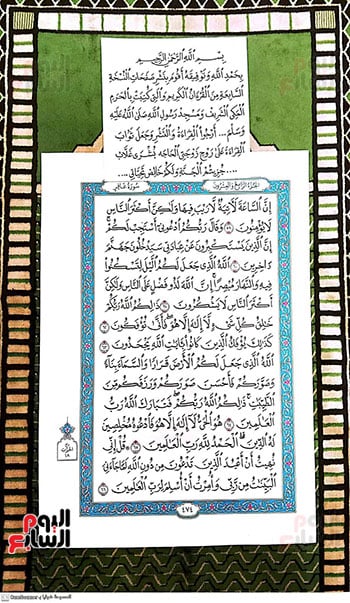 بِسْمِ اللَّهِ الرَّحْمَٰنِ الرَّحِيمِ
بِحَمْدِ اللَّهِ وَتَوْفِيقِهِ أَقُومُ بِنَشْرِ صَفَحَاتِ النُّسْخَةِ
السَّابِعَةِ مِنَ الْقُرْآنِ الْكَرِيمِ وَالَّتِي كُتِبَتْ بِالْحَرَمِ
الْمَكِّيِّ الشَّرِيفِ وَمَسْجِدِ رَسُولِ اللَّهِ صَلَّى اللَّهُ عَلَيْهِ
وَسَلَّمَ ... أَرْجُوا الْقِرَاءَةَ وَالنَّشْرَ وَجَعْلَ ثَوَابِ
الْقِرَاءَةِ عَلَى رُوحِ زَوْجَتِي الْحَاجَّة بُشْرَى غَلَّاب
... جُزِيتُمُ الْجَنَّةَ وَلَكُمْ خَالِصُ تَحِيَّاتِي ...
الجزء الرابع والعشرون
سورة غافر
إِنَّ السَّاعَةَ لَآتِيَةٌ لَا رَيْبَ فِيهَا وَلَٰكِنَّ أَكْثَرَ النَّاسِ
لَا يُؤْمِنُونَ ٥٩ وَقَالَ رَبُّكُمُ ادْعُونِي أَسْتَجِبْ لَكُمْ
إِنَّ الَّذِينَ يَسْتَكْبِرُونَ عَنْ عِبَادَتِي سَيَدْخُلُونَ جَهَنَّمَ
دَاخِرِينَ ٦٠ اللَّهُ الَّذِي جَعَلَ لَكُمُ اللَّيْلَ لِتَسْكُنُوا
فِيهِ وَالنَّهَارَ مُبْصِرًا إِنَّ اللَّهَ لَذُو فَضْلٍ عَلَى النَّاسِ وَلَٰكِنَّ
أَكْثَرَ النَّاسِ لَا يَشْكُرُونَ ٦١ ذَٰلِكُمُ اللَّهُ رَبُّكُمْ
خَالِقُ كُلِّ شَيْءٍ لَا إِلَٰهَ إِلَّا هُوَ فَأَنَّىٰ تُؤْفَكُونَ ٦٢
كَذَٰلِكَ يُؤْفَكُ الَّذِينَ كَانُوا بِآيَاتِ اللَّهِ يَجْحَدُونَ ٦٣
اللَّهُ الَّذِي جَعَلَ لَكُمُ الْأَرْضَ قَرَارًا وَالسَّمَاءَ بِنَاءً
وَصَوَّرَكُمْ فَأَحْسَنَ صُوَرَكُمْ وَرَزَقَكُمْ مِنَ
الطَّيِّبَاتِ ذَٰلِكُمُ اللَّهُ رَبُّكُمْ فَتَبَارَكَ اللَّهُ رَبُّ
الْعَالَمِينَ ٦٤ هُوَ الْحَيُّ لَا إِلَٰهَ إِلَّا هُوَ فَادْعُوهُ مُخْلِصِينَ
لَهُ الدِّينَ الْحَمْدُ لِلَّهِ رَبِّ الْعَالَمِينَ ٦٥ قُلْ إِنِّي
نُهِيتُ أَنْ أَعْبُدَ الَّذِينَ تَدْعُونَ مِنْ دُونِ اللَّهِ لَمَّا جَاءَنِيَ
الْبَيِّنَاتُ مِنْ رَبِّي وَأُمِرْتُ أَنْ أُسْلِمَ لِرَبِّ الْعَالَمِينَ ٦٦
٤٧٤
اليوم
السابع